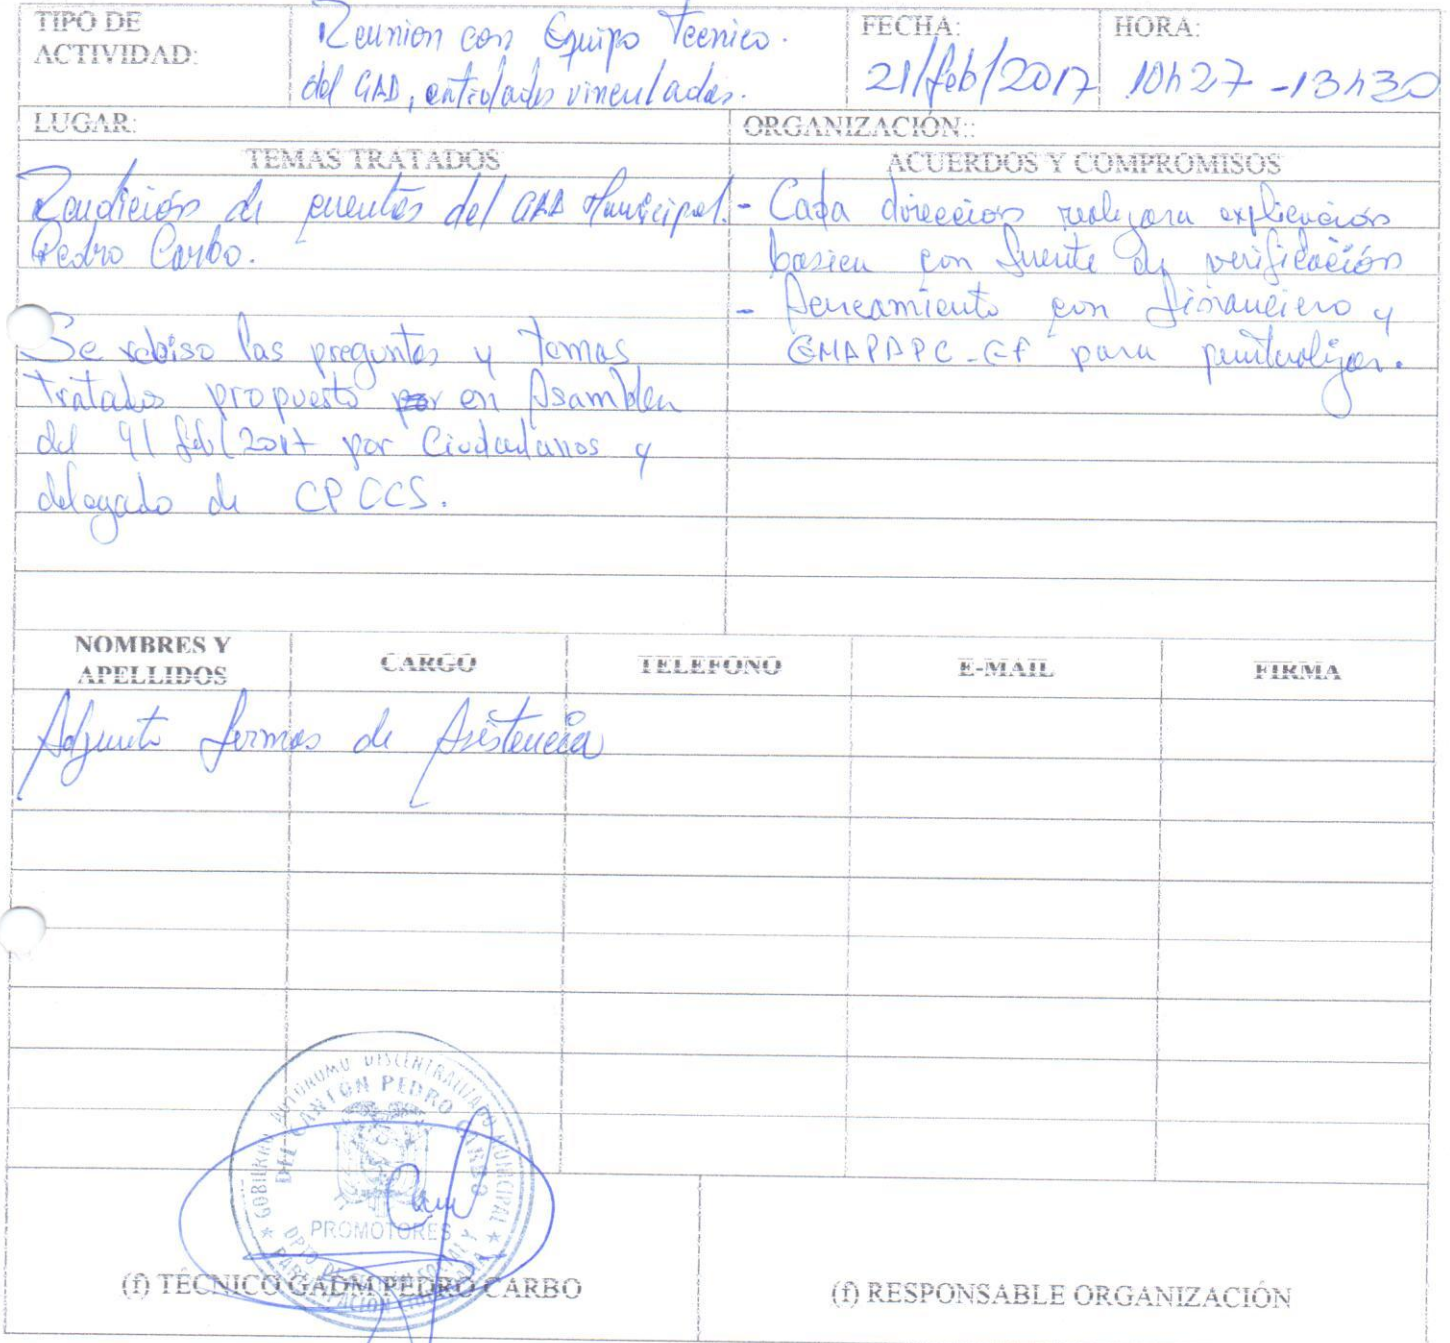 TIPO DE
ACTIVIDAD:
Reunion con Equipo Tecnico.
del GAD, entidades vinculadas.
FECHA:
21/feb/2017
HORA:
10h27 - 13h30
LUGAR:
ORGANIZACIÓN::
TEMAS TRATADOS
Rendición de cuentas del GAD Municipal.
Pedro Carbo.
Se rebiso las preguntas y temas
tratados propuesto por en Asamblea
del 9/feb/2017 por Ciudadanos y
delegado de CPCCS.
ACUERDOS Y COMPROMISOS
- Cada direccion realizara explicación
basica con fuente de verificación
- con financiero y
EMAPAPC-EP para
NOMBRES Y
APELLIDOS
CARGO
TELEFONO
E-MAIL
FIRMA
Adjunto firmas de Asistencia
GOBIERNO AUTONOMO DESCENTRALIZADO MUNICIPAL
DEL CANTON PEDRO CARBO
PROMOTORES
(f) TÉCNICO GADM PEDRO CARBO
(f) RESPONSABLE ORGANIZACIÓN